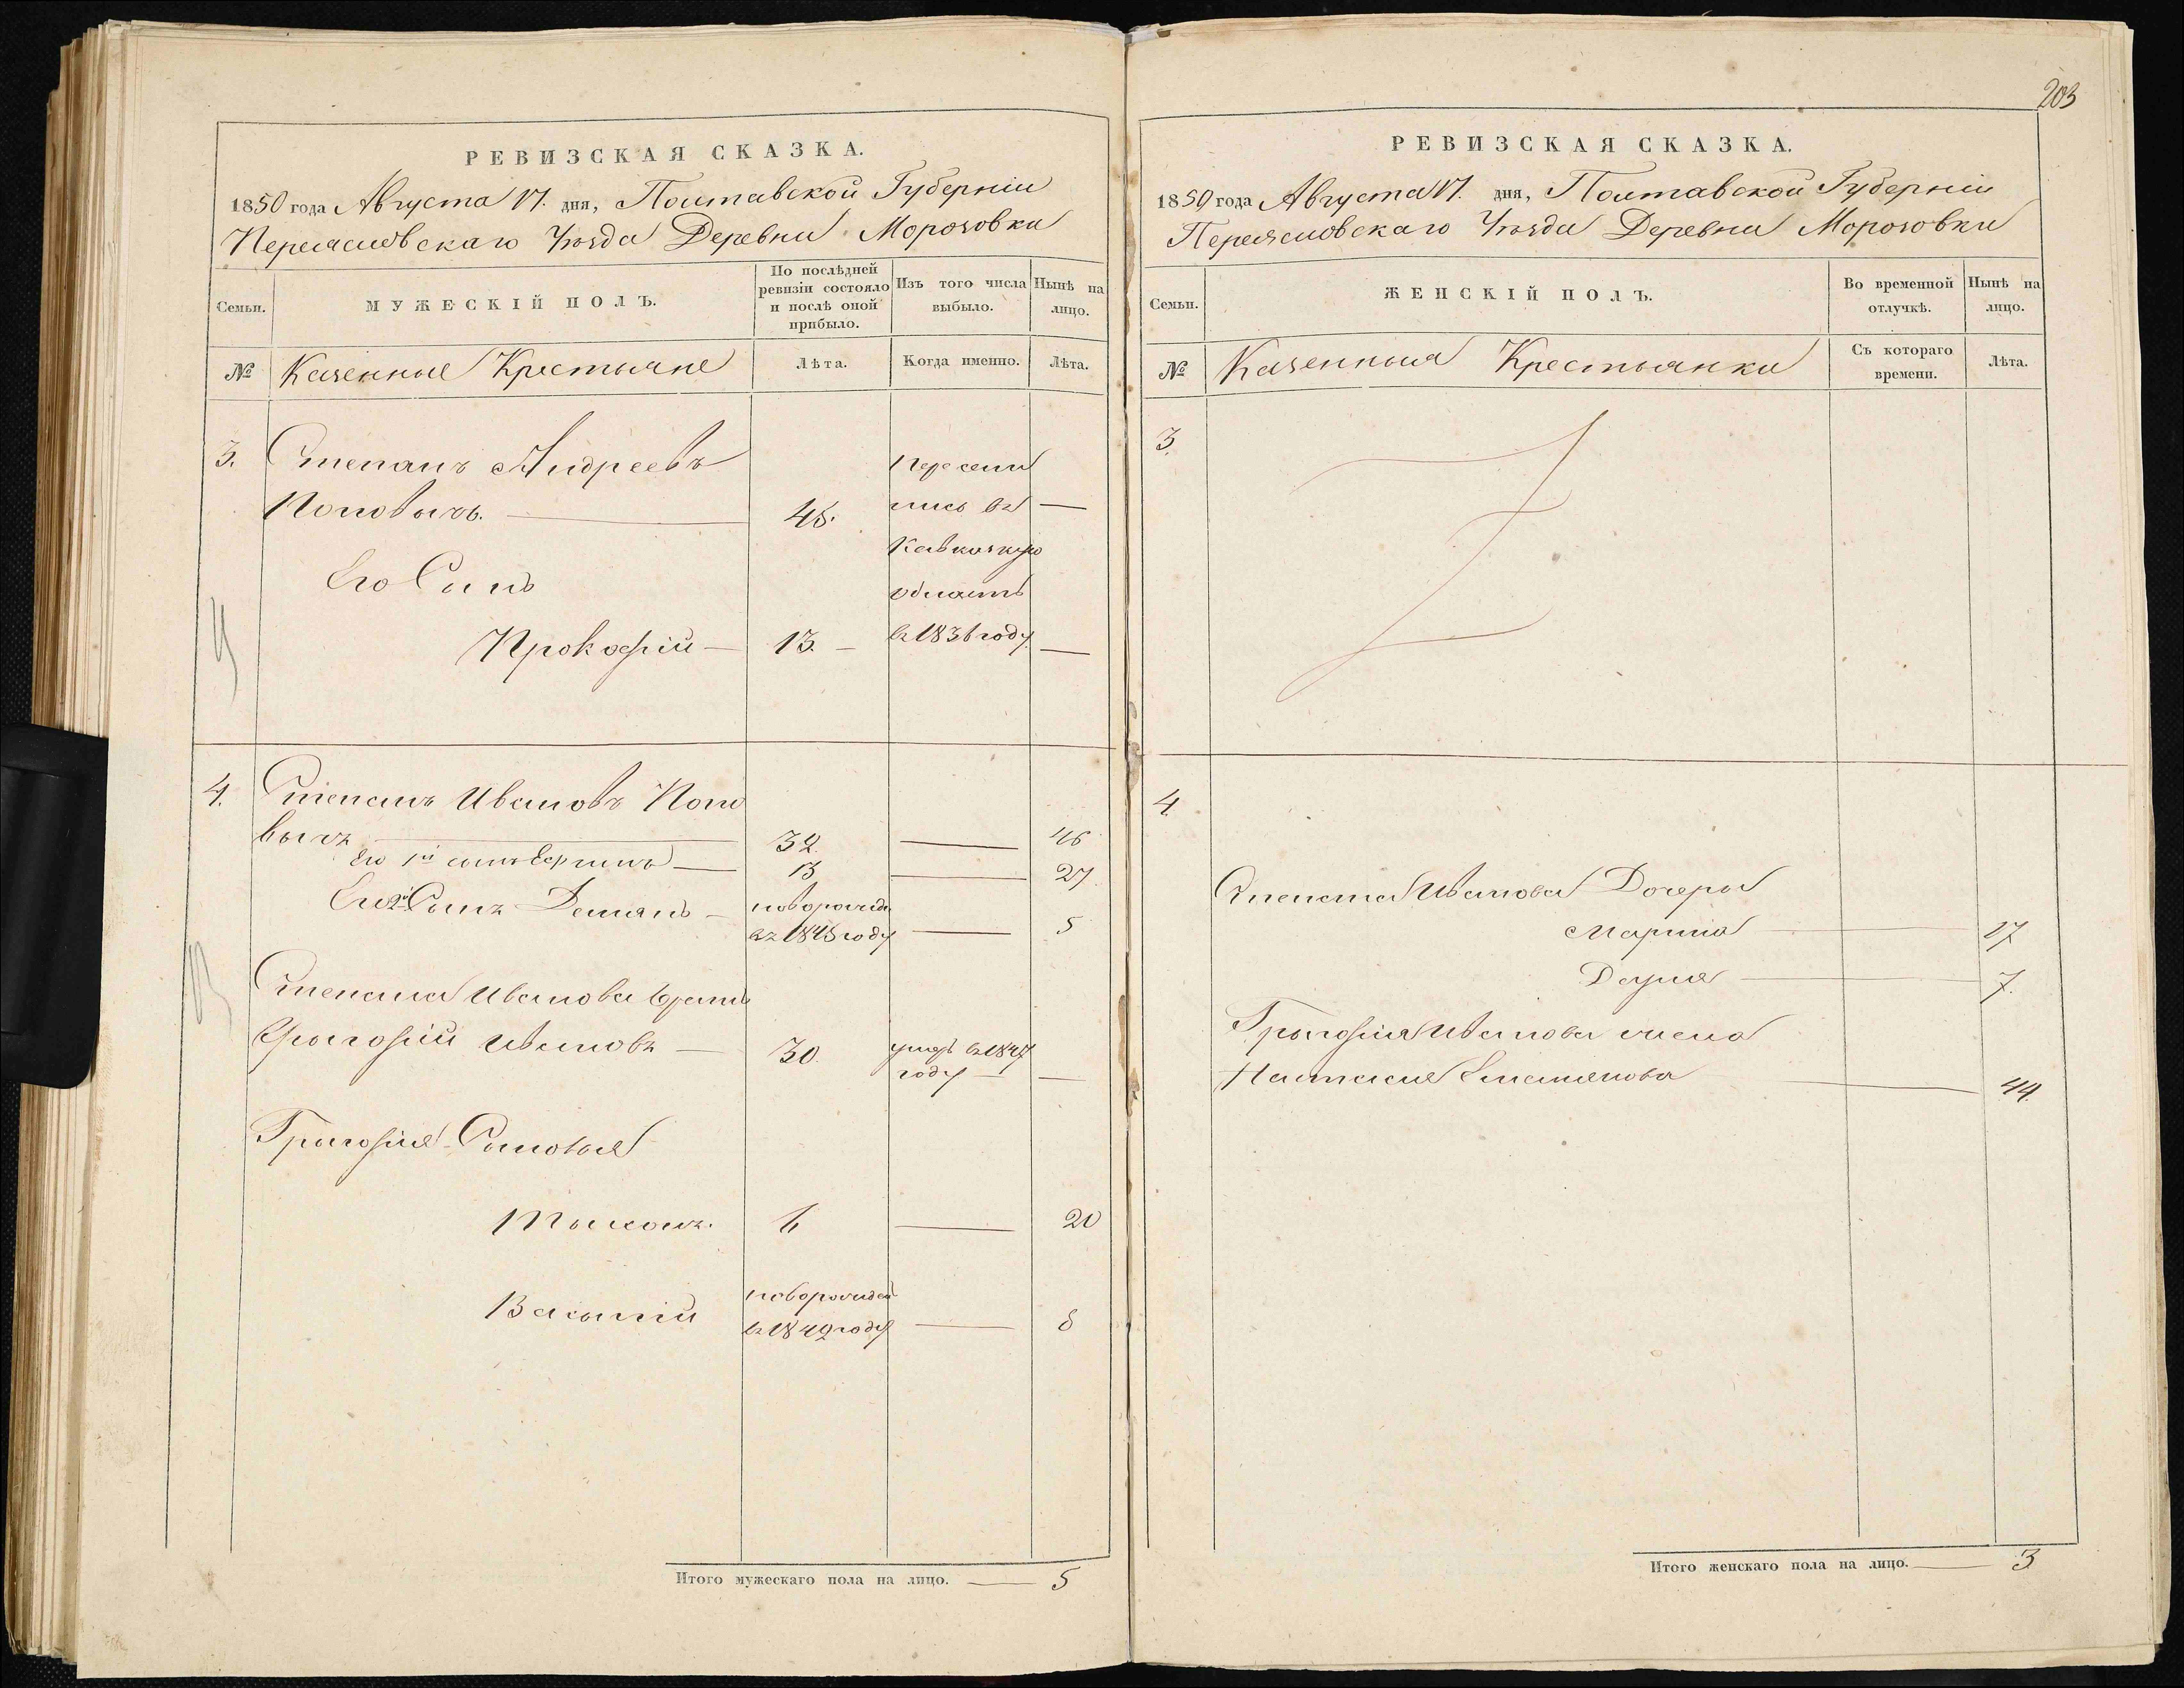 203
РЕВИЗСКАЯ СКАЗКА.
1850 года Августа 17. дня, Полтавской Губерніи
Переяславскаго Уѣзда Деревни Морозовки
Семьи.
МУЖЕСКІЙ ПОЛЪ.
По послѣдней ревизіи состояло и послѣ оной прибыло.
Изъ того числа выбыло.
Нынѣ на лицо.
№
Казенные Крестьяне
Лѣта.
Когда именно.
Лѣта.
3. Степанъ Андреевъ
Поповычъ. 48.
Пересели
лись въ —
Кавказкую
область
въ 1836 году.
Его Сынъ
Прокофій — 13. — —
4. Степанъ Ивановъ Попо
вычъ 32. — 46
Его 1й сынъ — 13 — 27.
Его 2й Сынъ Демянъ — новорожде
въ 1845 году — 5
Степана Иванова братъ
Грыгорій Ивановъ — 30. умеръ въ 1847
году — —
Грыгорія Сыновья
Тыхонъ. 6 — 20
Васылій новорожден
въ 1842 году — 8
Итого мужескаго пола на лицо. — 5
РЕВИЗСКАЯ СКАЗКА.
1850 года Августа 17. дня, Полтавской Губерніи
Переяславскаго Уѣзда Деревни Морозовки
Семьи.
ЖЕНСКІЙ ПОЛЪ.
Во временной отлучкѣ.
Нынѣ на лицо.
№
Казенныя Крестьянки
Съ котораго времени.
Лѣта.
3.
4.
Степана Иванова Дочеры
Марина — 17
Дарія — 7.
Грыгорія Иванова жена
Настасия Емельянова — 44.
Итого женскаго пола на лицо. — 3